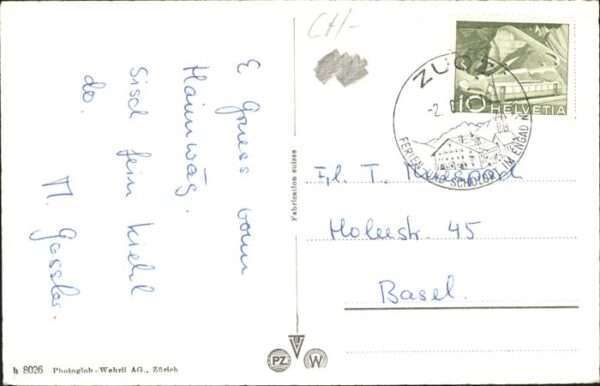 E Gruess vom
Haimwäg.
Sisch fein kiehl
do.
M. Gessler.
CH-
ZUOZ
-2.
FERIEN
SCHULORT IM ENGAD
10 HELVETIA
Frl. T.
Holeestr. 45
Basel.
Fabrication suisse
PZ
W
h 8026 Photoglob-Wehrli AG., Zürich